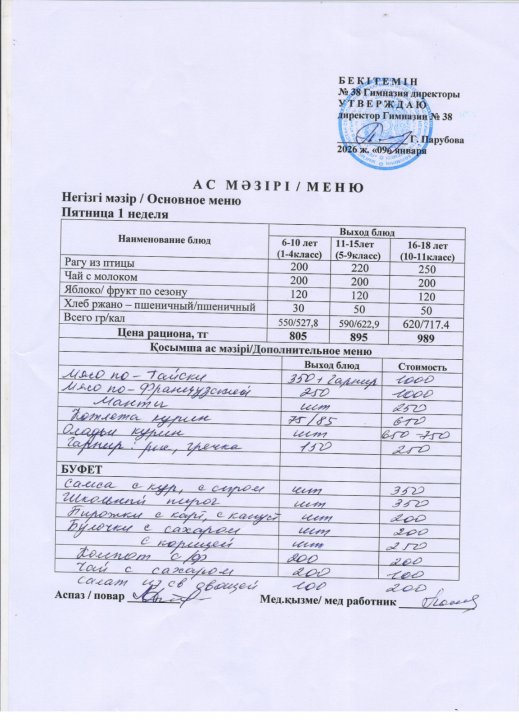 БЕКІТЕМІН
№ 38 Гимназия директоры
УТВЕРЖДАЮ
директор Гимназии № 38
Г. Парубова
2026 ж. «09» января
АС МӘЗІРІ / МЕНЮ
Негізгі мәзір / Основное меню
Пятница 1 неделя
Наименование блюд Выход блюд
6-10 лет (1-4класс) 11-15лет (5-9класс) 16-18 лет (10-11класс)
Рагу из птицы 200 220 250
Чай с молоком 200 200 200
Яблоко/ фрукт по сезону 120 120 120
Хлеб ржано – пшеничный/пшеничный 30 50 50
Всего гр/кал 550/527,8 590/622,9 620/717.4
Цена рациона, тг 805 895 989
Қосымша ас мәзірі/Дополнительное меню
Выход блюд Стоимость
Мясо по-Тайски 350+гарнир 1000
Мясо по-Французский 250 1000
Манты шт 250
Котлета курин 75/85 610
Оладьи курин шт 650-750
Гарнир: рис, гречка 150 250
БУФЕТ
Самса с кур, с сыром шт 350
Школьный пирог шт 350
Пирожки с карт, с капуст шт 200
Булочки с сахаром шт 200
с корицей шт 250
Компот с/ф 200 200
Чай с сахаром 200 100
Салат из св овощей 100 200
Аспаз / повар Мед.қызме/ мед работник